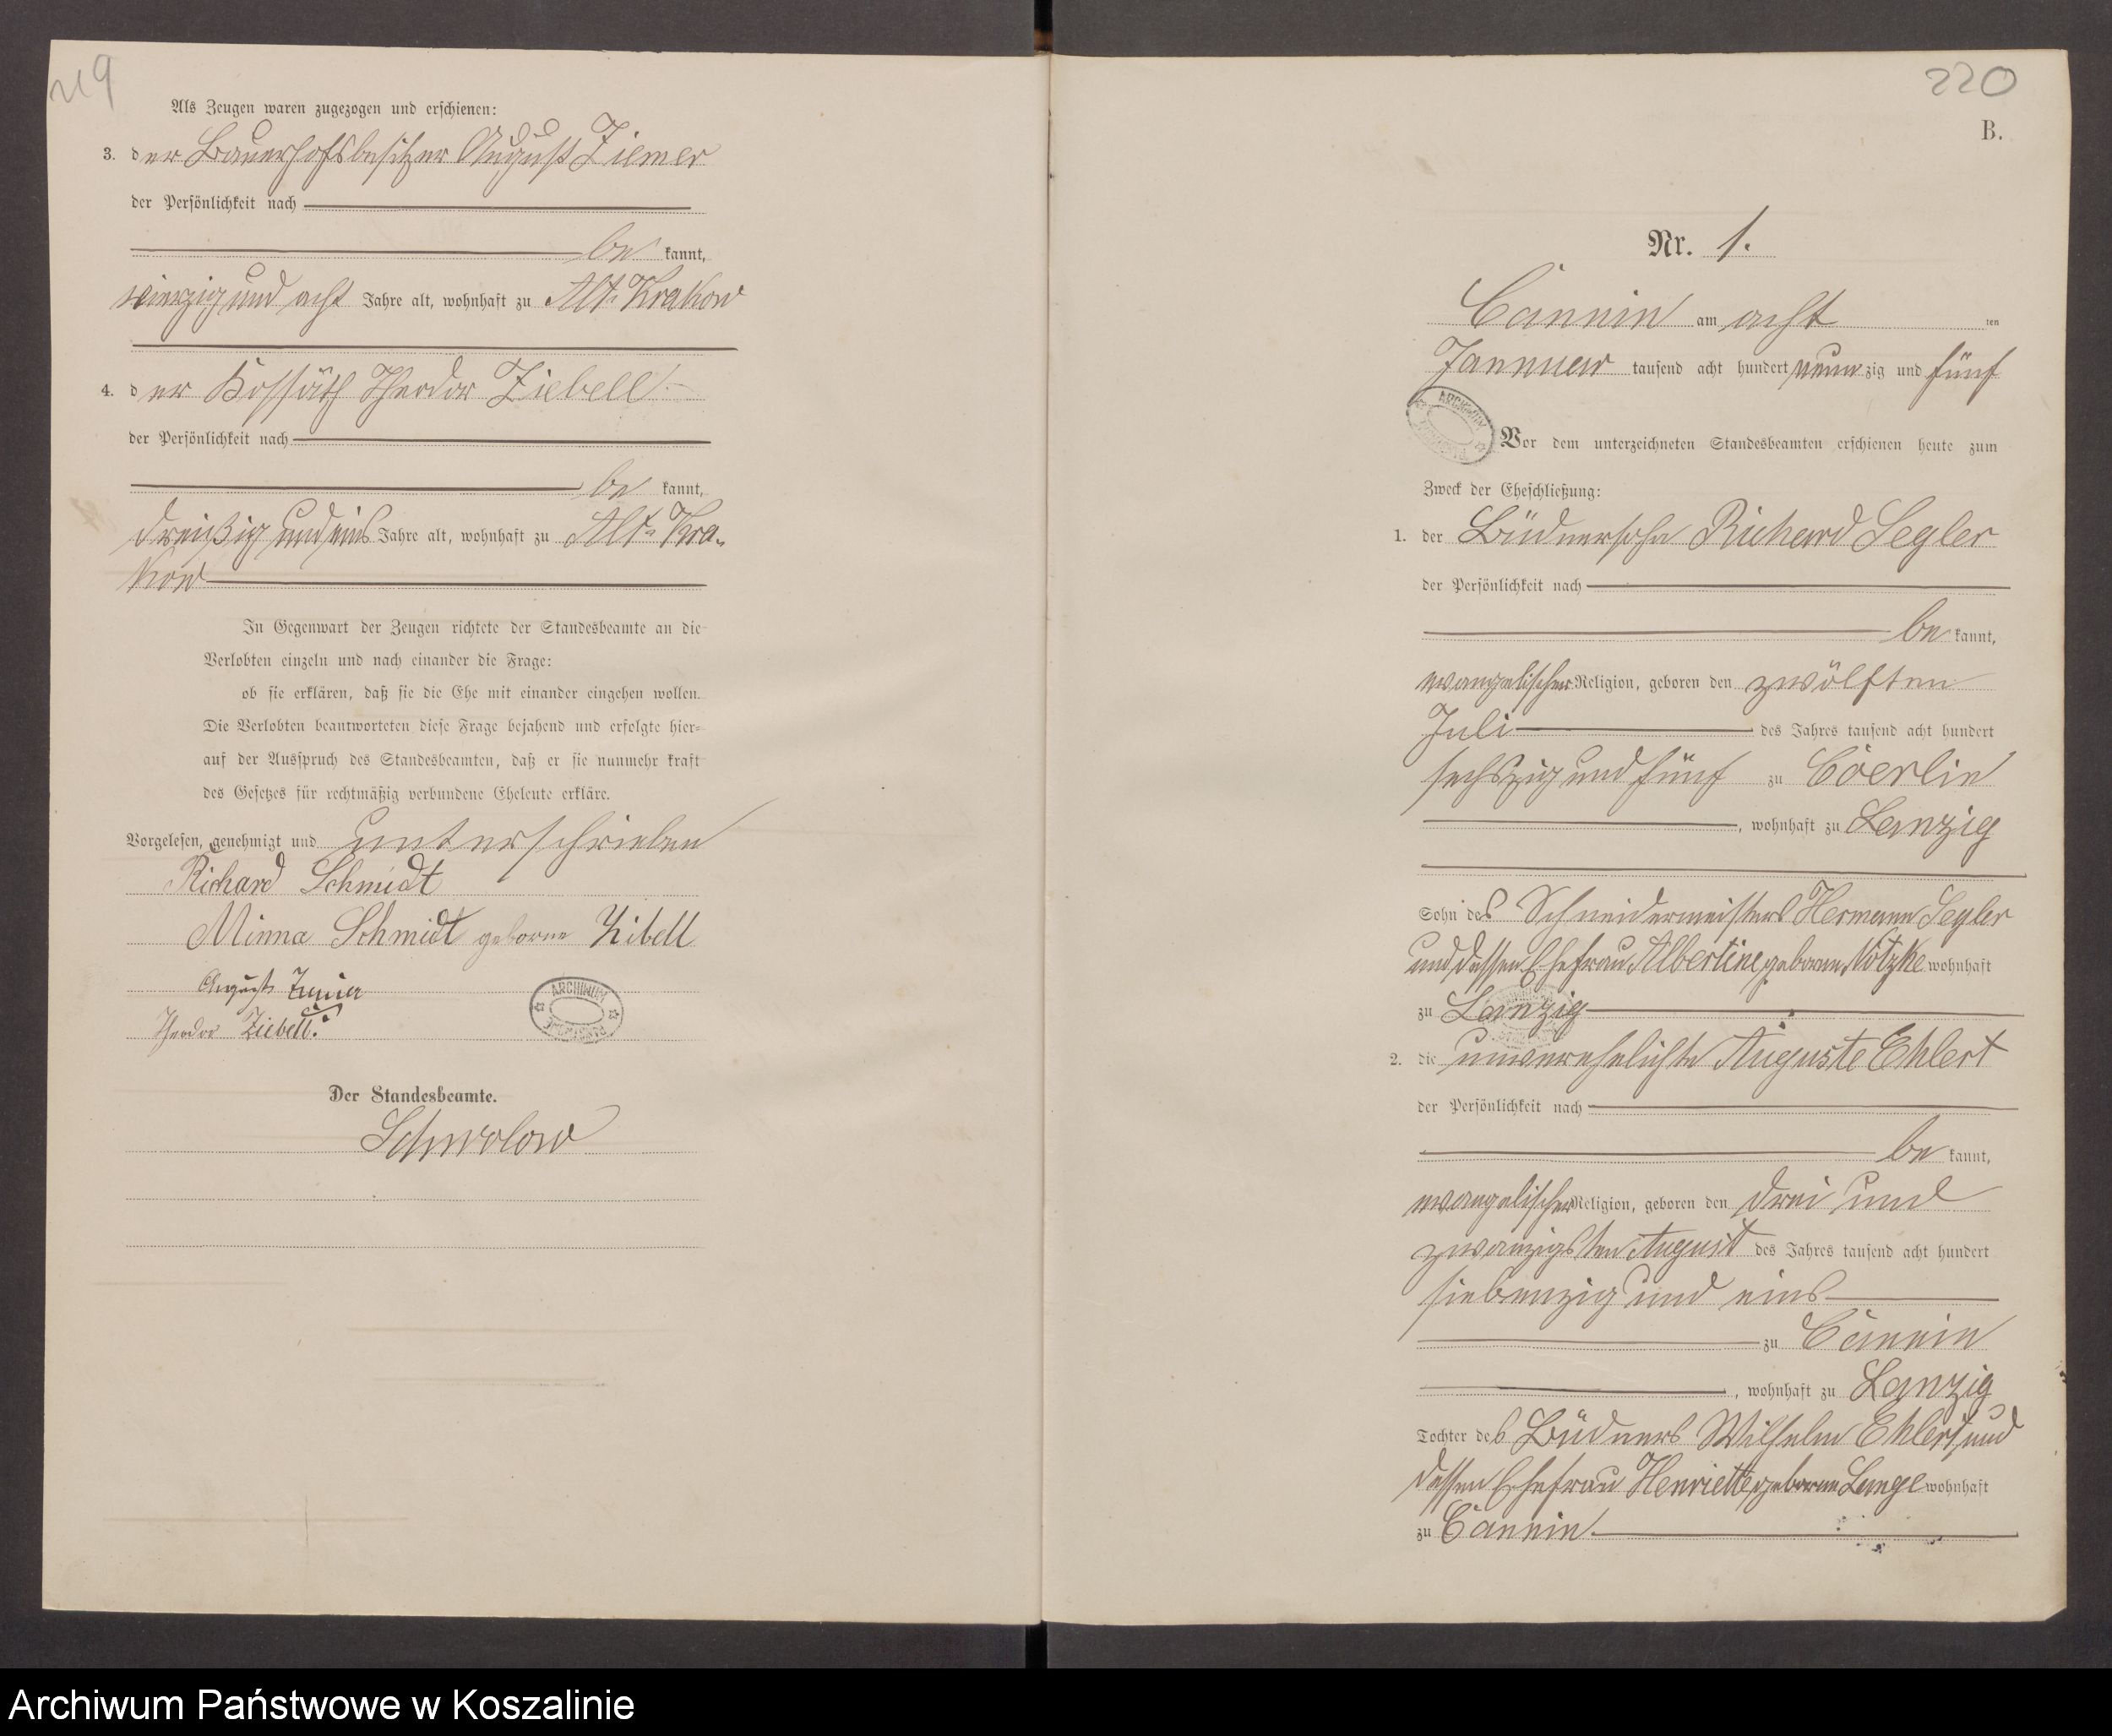 219
Als Zeugen waren zugezogen und erschienen:
3. der Bauerhofsbesitzer August Ziemer
der Persönlichkeit nach
be kannt,
vierzig und acht Jahre alt, wohnhaft zu Alt-Krakow
4. der Kossäth Theodor Ziebell
der Persönlichkeit nach
be kannt,
dreißig und eins Jahre alt, wohnhaft zu Alt-Kra-
kow
In Gegenwart der Zeugen richtete der Standesbeamte an die
Verlobten einzeln und nach einander die Frage:
ob sie erklären, daß sie die Ehe mit einander eingehen wollen.
Die Verlobten beantworteten diese Frage bejahend und erfolgte hier-
auf der Ausspruch des Standesbeamten, daß er sie nunmehr kraft
des Gesetzes für rechtmäßig verbundene Eheleute erkläre.
Vorgelesen, genehmigt und unterschrieben
Richard Schmidt
Minna Schmidt geborne Zibell
August Ziemer
Theodor Ziebell.
ARCHIWUM
Der Standesbeamte.
Schwolow
220
B.
Nr. 1.
Cannin am acht ten
Jannuar tausend acht hundert neun zig und fünf
ARCHIWUM
Vor dem unterzeichneten Standesbeamten erschienen heute zum
Zweck der Eheschließung:
1. der Büdnersohn Richard Segler
der Persönlichkeit nach
be kannt,
evangelischer Religion, geboren den zwölften
Juli des Jahres tausend acht hundert
sechszig und fünf zu Cöerlin
, wohnhaft zu Lanzig
Sohn des Schneidermeisters Hermann Segler
und dessen Ehefrau Albertine, geborne Nötzke wohnhaft
zu Lanzig
2. die unverehelichte Auguste Ehlert
der Persönlichkeit nach
be kannt,
evangelischer Religion, geboren den drei und
zwanzigsten August des Jahres tausend acht hundert
siebenzig und eins
zu Cannin
, wohnhaft zu Lanzig
Tochter des Büdners Wilhelm Ehlert und
dessen Ehefrau Henriette geborne Lange wohnhaft
zu Cannin
Archiwum Państwowe w Koszalinie